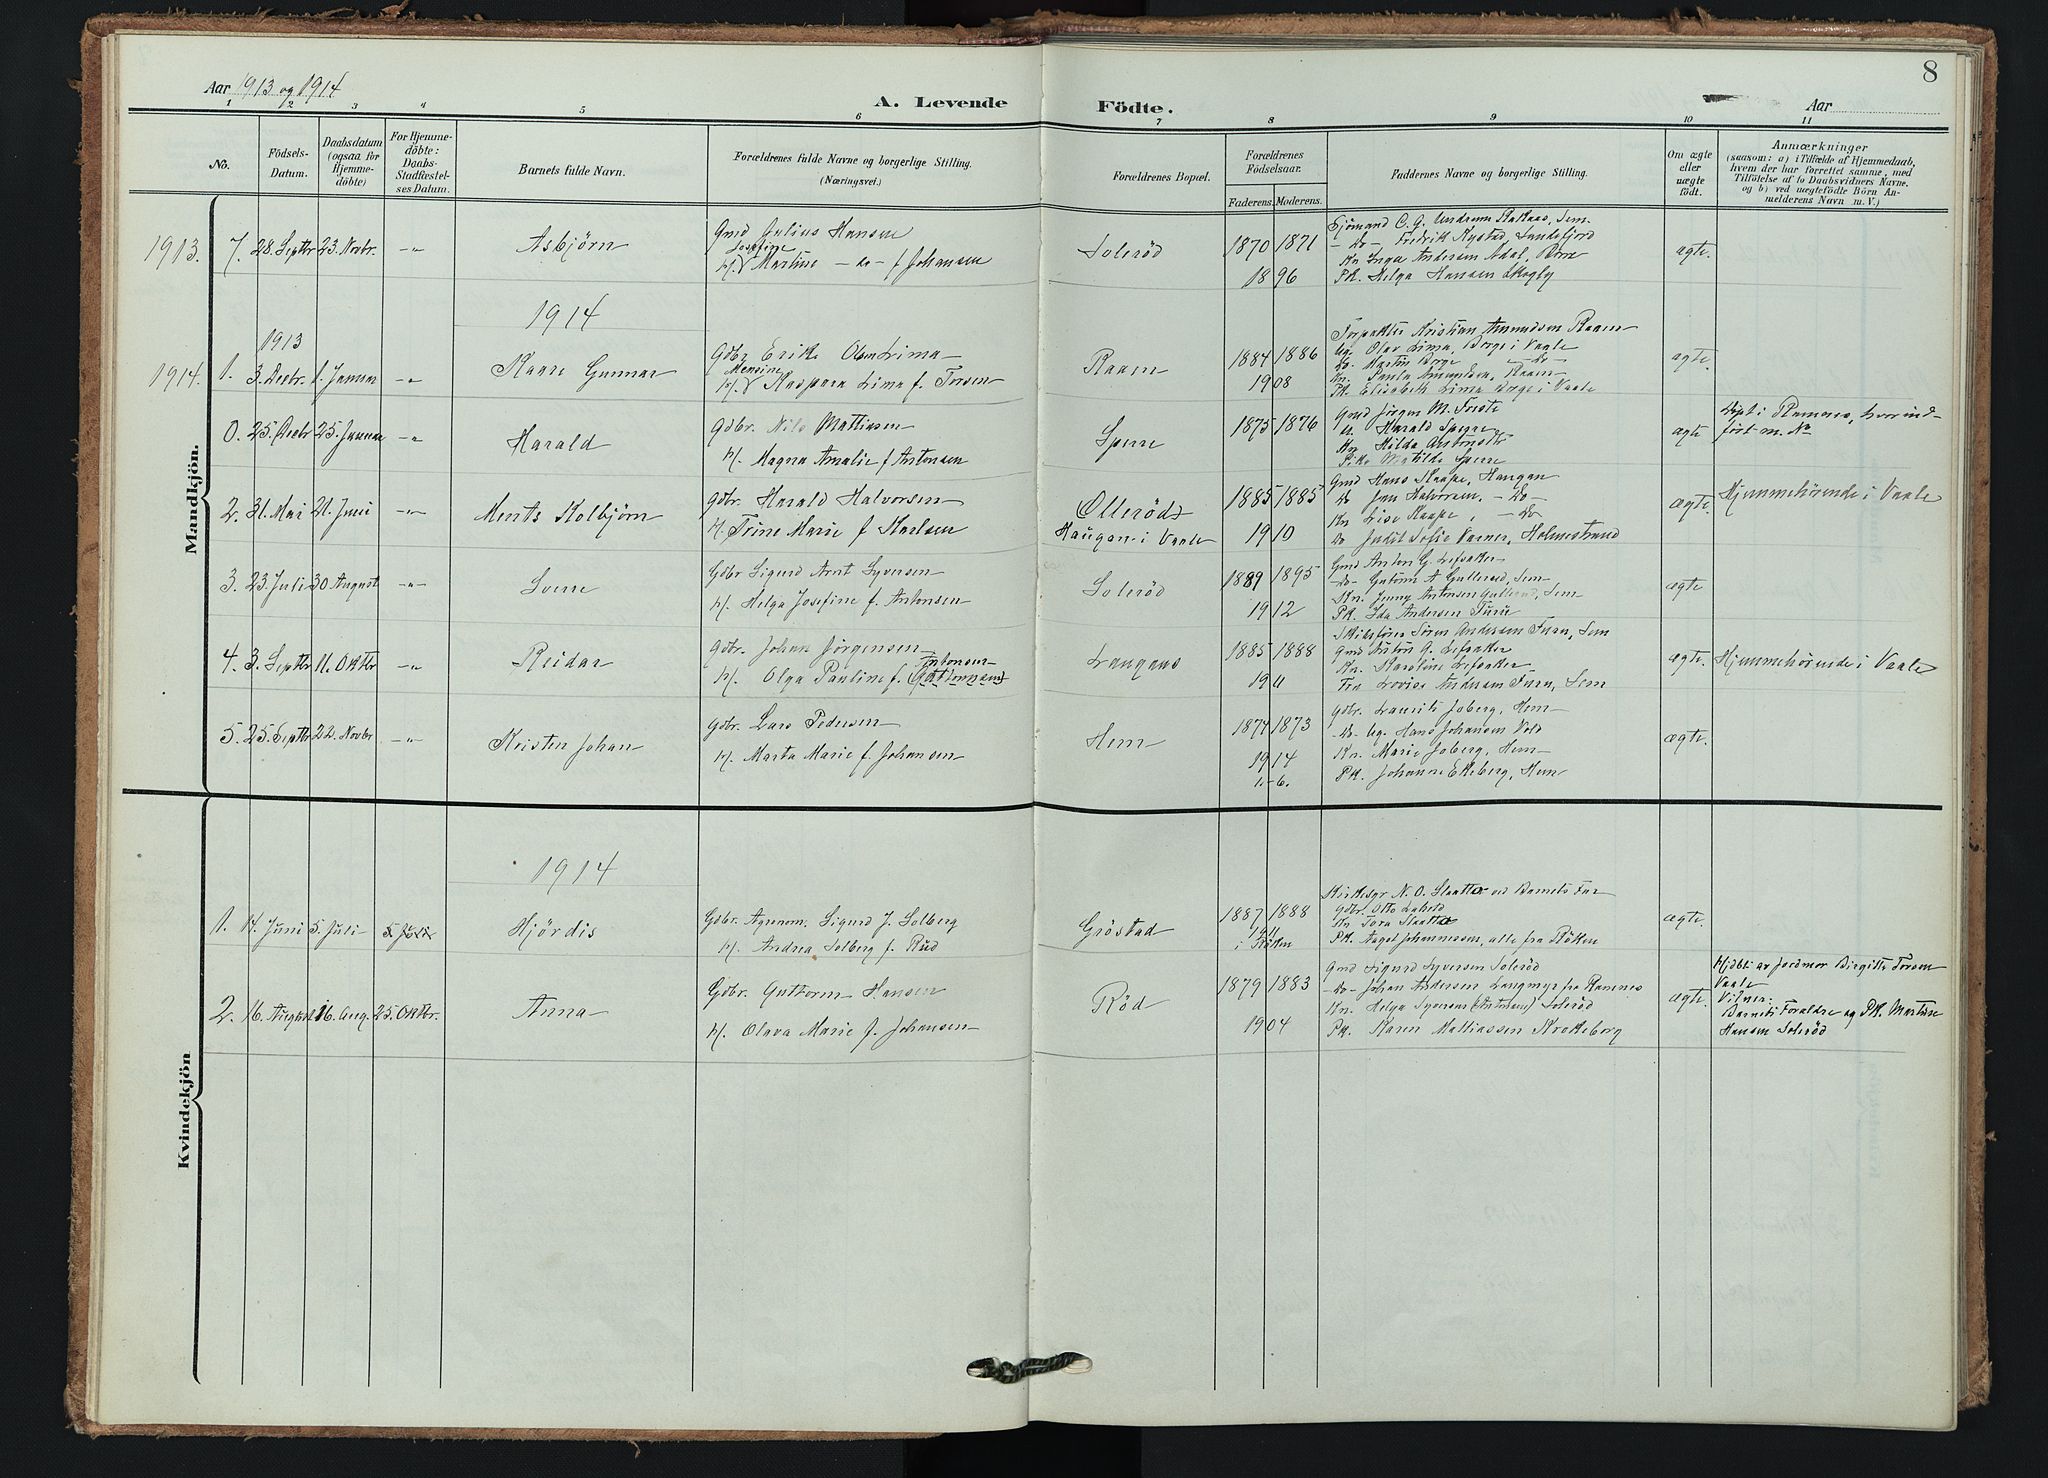 8
Aar 1913 og 1914
A. Levende Födte.
Aar
1 2 3 4 5 6 7 8 9 10 11
No.
Födsels-Datum.
Daabsdatum (ogsaa for Hjemmedöbte)
For Hjemmedöbte: Daabs-Stadfæstelses Datum.
Barnets fulde Navn.
Forældrenes fulde Navne og borgerlige Stilling.
(Næringsvei.)
Forældrenes Bopæl.
Forældrenes Födselsaar.
Faderens. Moderens.
Faddernes Navne og borgerlige Stilling.
Om ægte eller uægte födt.
Anmærkninger
(saasom: a) i Tilfælde af Hjemmedaab,
hvem der har forrettet samme, med
Tilföielse af to Daabsvidners Navne,
og b) ved uægtefödte Börn An-
melderens Navn m. V.)
Mandkjön.
1913. 7. 28. Septbr 23. Novbr. -"- Asbjörn
Gmd Julius Hansen
Josefine
H. Martine -do- f Johansen
Soleröd
1870 1871
1896
Sjömand C. G. Andersen Sem.
-Do- Fredrik Nystad Sandefjord
Kn Inga Andersen Adal, Borre
Pk. Helga Hansen Skogly
ægte.
1914
1913
1914. 1. 3. Decbr. 1. Januar -"- Kaare Gunnar
Gdbr Erik Olsen Lima
Mensine
H. Kaspara Lima f. Torsen
Raaen
1884 1886
1908
Forpakter Kristian Amundsen Raaen
Ug. Olav Lima, Borge i Vaale
Do. Martin Borge -Do-
Kn. Paula Amundsen, Raaen
Pk. Elisabeth Lima Borge i Vaale
ægte.
0. 25. Decbr 25. Januar -"- Harald
Gdbr. Nils Mattissen
H. Magna Amalie f Antonsen
Sperre
1875 1876
Gmd Jörgen M.
U. Harald Sperre
Kn Hilda
Pike Matilde Sperre
ægte
Döpt i Ramnes, hvor ind-
fört m. No
2. 31. Mai 21. Juni -"- Ments Kolbjörn
Gdbr. Harald Halvorsen
H. Trine Marie f Karlsen
Olleröd
Haugan i Vaale
1885 1885
1910
Gmd Hans Kaape, Haugan
Do Jan Halvorsen, -Do-
Kn Lise Kaape, -Do-
Do Judit Sofie Varner, Holmestrand
ægte.
Hjemmehörende i Vaale
3. 23. Juli 30 August -"- Sverre
Gdbr Sigurd Arnt Syversen
H. Helga Josefine f. Antonsen
Soleröd
1889 1895
1912
Gmd Anton G. Lefsaker
-Do- Guttorm A Gullerød, Sem
Kn. Jenny Antonsen Gullerød, Sem
Pk. Ida Andersen Furu
ægte
4. 3. Septbr 11. Oktbr -"- Reidar
Gdbr. Johan Jörgensen
Antonsen
H. Olga Pauline f.
Langaas
1885 1888
1911
Skibsförer Sören Andersen Furu, Sem
Gmd Anton G. Lefsaker
Kn. Karoline Lefsaker
Fru Lovise Andersen Furu, Sem
ægte.
Hjemmehörende i Vaale
5. 25. Septbr 22. Novbr -"- Kristen Johan
Gdbr. Lars Pedersen
H. Marta Marie f. Johansen
Hem
1874 1873
1914
1.-6.
Gdbr. Laurits Joberg, Hem
-Do- Ug. Hans Johansen Vold
Kn. Marie Joberg, Hem
Pk. Johanne Ekeberg, Hem
ægte.
Kvindekjön
1914
1. 14. Juni 5. Juli 5. Juli Hjördis
Gdbr. Agronom. Sigurd J. Solberg
H. Andrea Solberg f. Rud
Gröstad
1887 1888
1911
i Röken
Kirkesgr N. O. Slaatte ved Barnets Far
Gdbr. Otto
Kn Tora Slaatte
Pk. Aagot Johannessen, alle fra Röken
ægte.
2. 16. August 16. Aug. 25. Oktbr. Anna
Gdbr. Guttorm Hansen
H. Olava Marie f. Johansen
Röd
1879 1883
1904
Gmd Sigurd Syversen Soleröd
-Do- Johan Andersen Langmyr fra Ramnes
Kn. Helga Syversen (Antonsen) Soleröd
Pk. Karen Mattiassen Krokeborg
ægte.
Hjdbt av Jordmor Birgitte Torsen
Vaale
Vidner:
Barnets Foraldre og Pk. Martine
Hansen Solerød